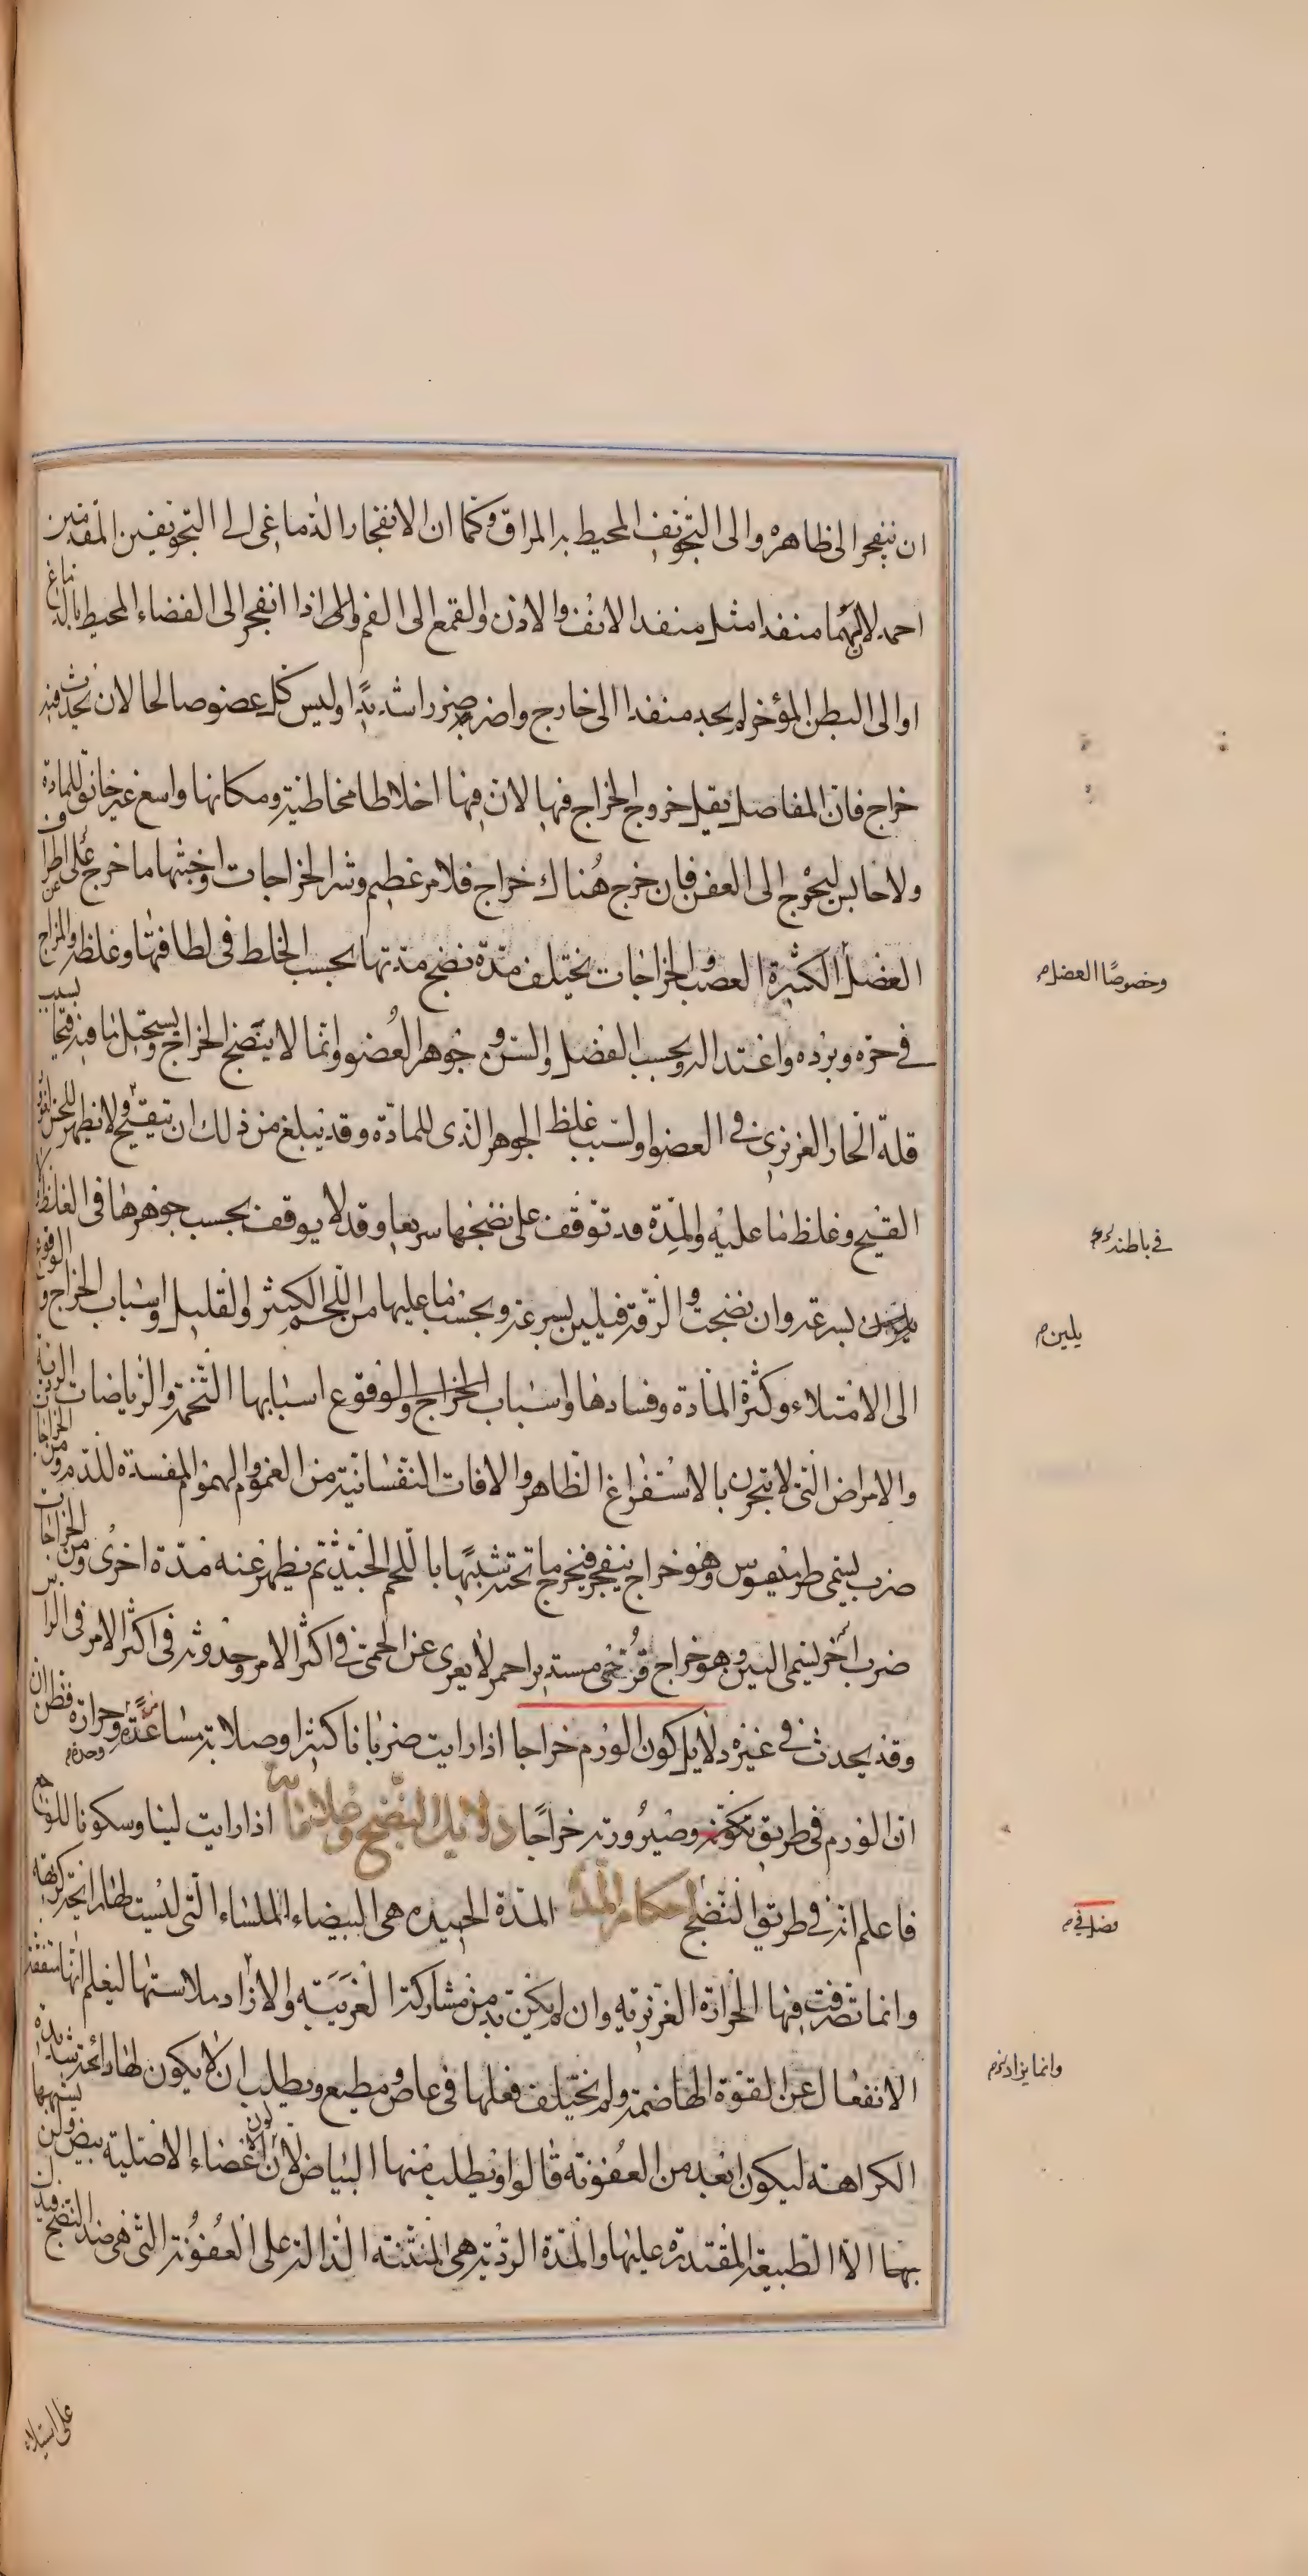 ان ينفجر الى ظاهره والى التجويف المحيط به المراق وكما ان الانفجار الدماغى الى التجويفين المقدمين
احمد لان لهما منفدا مثل منفد الانف والاذن والقمع الى الفم والى اذا انفجر الى الفضاء المحيط بالدماغ
او الى البطن المؤخر لم يجد منفدا الى خارج واضر ضررا شديدًا وليس كل عضو صالحا لان يحدث فيه
خراج فان المفاصل يقل خروج الخراج فيها لان فيها اخلاطا مخاطية ومكانها واسع غير خانق للمادة
ولا حابس ليحوج الى العفن فان خرج هُناك خراج فلامر عظيم وشر الخراجات واخبثها ما خرج على اطراف
العضل الكثيرة العصب والخراجات يختلف مدّة نضج مدتها بحسب الخلط فى لطافتها وغلظه والمزاج
وخصوصًا العضل م
فى حره وبرده واعتداله وبحسب الفصل والسن و جوهر العُضو وانما لا ينضج الخراج ويستحيل ما فيه قيحا بسبب
قلة الحار الغريزى فى العضو او لسبب غلظ الجوهر الذى للمادّة وقد يبلغ من ذلك ان يتقيح ولا يظهر للحس
القيح وغلظ ما عليه والمِدّة قد توقف على نضجها سريعا وقد لا يوقف بحسب جوهرها فى الغلظ
فى باطنه
بسرعة وان نضجت و الرقة فيلين بسرعة وبحسب ما عليها من اللحم الكثير والقليل واسباب الخراج
يلين م
الى الامتلاء وكثرة المادة وفسادها واسباب الخراج والوقوع اسبابها التخمة والرياضات الردية
والامراض التى لا تبحرن بالاستفراغ الظاهر والافات النفسانية من الغموم والهموم المفسدة للدم ومن الخراجات
ضرب يسمى طرميسوس وهو خراج ينفجر فيخرج ما تحته شبيها باللحم الجيد ثم يظهر عنه مدّة اخرى ومن الخراجات
ضرب اخر يسمى البين وهو خراج قُرحى مستدير احمر لا يعرى عن الحمى فى اكثر الامر وحدوثه فى اكثر الامر فى الراس
وقد يحدث فى غيره دلايل كون الورم خراجا اذا رايت ضربانا كثيرا وصلابة مساعدة وحرارة فظن ان
الورم فى طريق تكونه وصيرورته خراجًا دلايل النضج وعلاماته اذا رايت لينا وسكونا للوجع
فاعلم انه فى طريق النضج احكام المدة المدّة الجيده هى البيضاء الملساء التى ليست لها رايحة كريهة
فصل فى م
وانما تصرفت فيها الحرارة الغريزيه وان لم يكن بد من مشاركة الغريبه والاراد ملاستها ليعلم انها متفقة
وانما يراد م
الانفعال عن القوة الهاضمة ولم يختلف فعلها فى عاص ومطيع ويطلب ان لا يكون لها رائحة شديدة
الكراهة ليكون ابعد من العفونه قالوا ويطلب منها البياض لان لون الاعضاء الاصلية بيض ولن يشبهها
بها الا الطبيعة المقتدرة عليها والمدّة الردية هى المنتنه الدالة على العفونة التى هى ضد النضج
على استيلاء